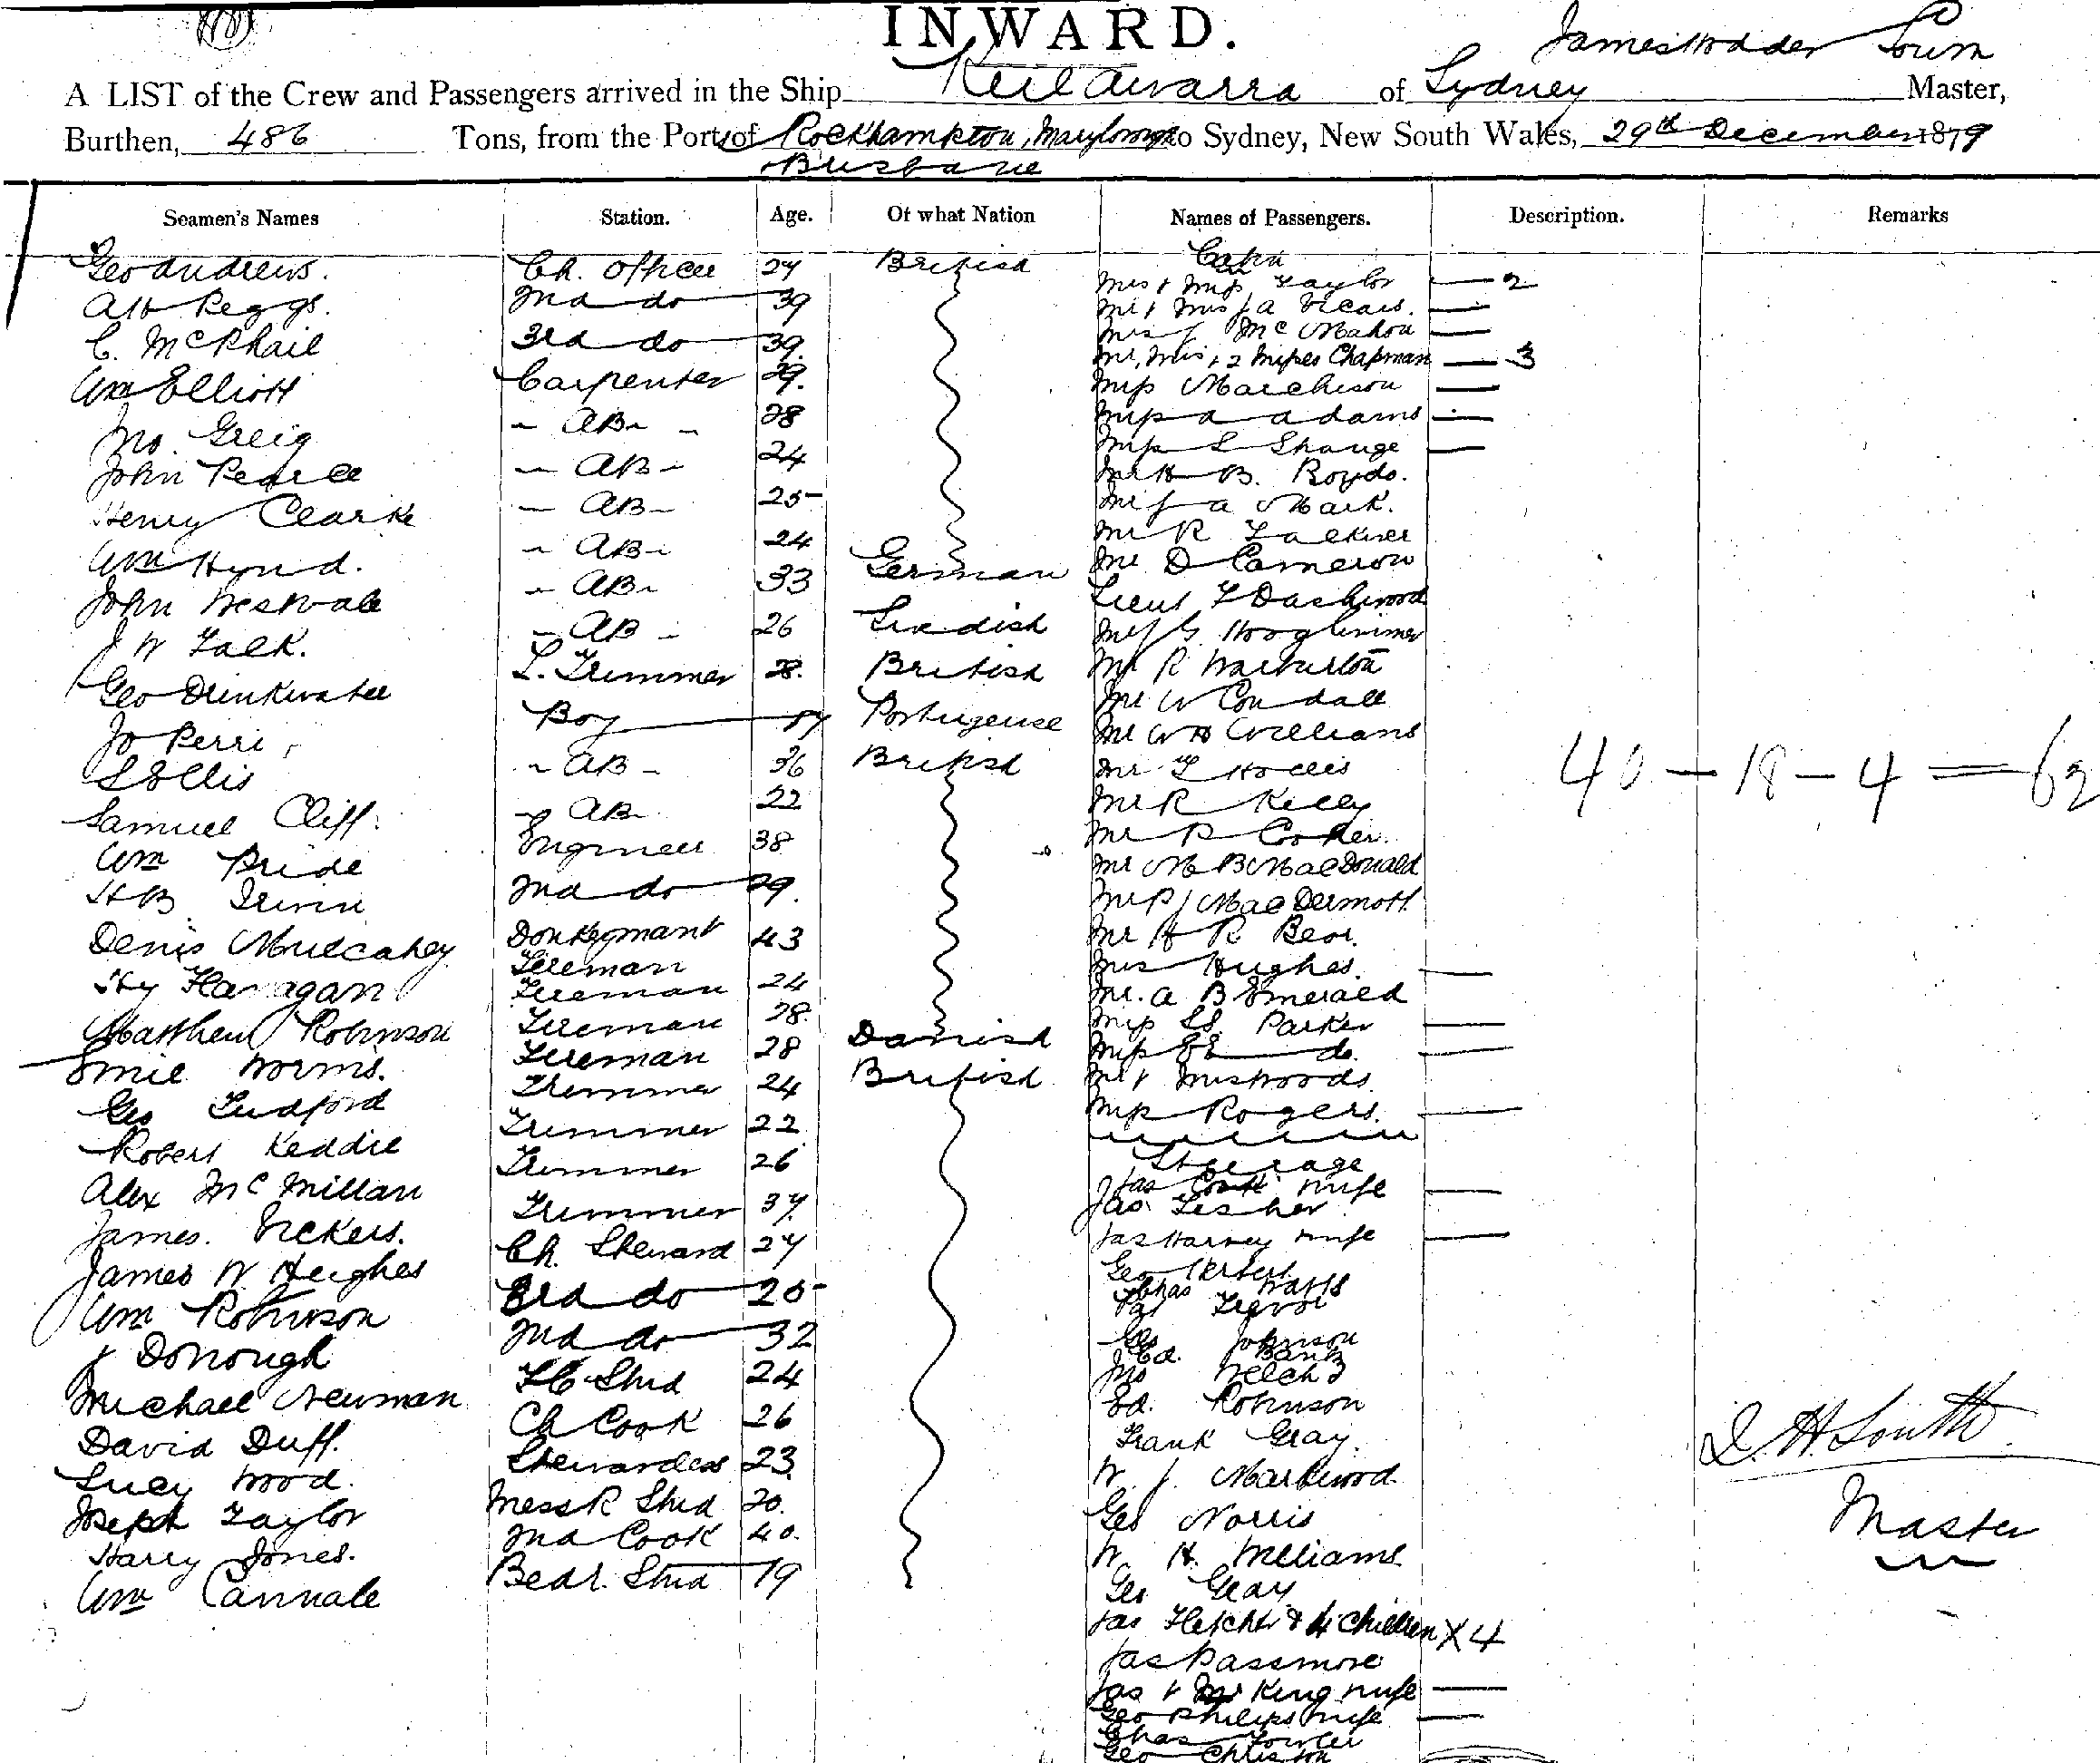 INWARD.
James Wodder South
A LIST of the Crew and Passengers arrived in the Ship Keilawarra of Sydney Master,
Burthen, 486 Tons, from the Ports of Rockhampton, Maryborough to Sydney, New South Wales, 29th December 1879
Brisbane
Seamen's Names Station. Age. Of what Nation Names of Passengers. Description. Remarks
Cabin
Geo Andrews. Ch. Officer 27 British
Mrs & Miss Taylor — 2
AH Peggs. 2nd do 39
Mr & Mrs J A Vicars. —
C. McPhail 3rd do 39.
Mrs J McMahon —
Mr, Mrs & 2 Misses Chapman — 3
Wm Elliott Carpenter 29.
Miss Marchison —
Jno. Greig - AB - 28
Miss A Adams —
Miss L Shange —
John Pearce - AB - 24
Mr H B. Boyds.
Henry Clarke - AB - 25
Mr J A Mark.
Mr R Falkiner
Wm Hynd. - AB - 24
Mr D Cameron
John Westvale - AB - 33 German
Lieut F Dashwood
J W Falk. - AB - 26 Swedish
Mr J G Hooglivimer
Geo Drinkwater L. Trimmer 28. British
Mr R Warburton
Mr W Condale
Jo Perri, Boy 17 Portugeuse
Mr W H Williams
S Ellis - AB - 36 British
Mr T Hollis
40 — 18 — 4 = 62
Samuel Cliff. - AB 22
Mr R Kelly
Wm Pride Engineer 38
Mr R Cooker.
Mr M B MacDonald
HB Irwin 2nd do 29.
Mr P J MacDermott
Denis Mulcahey Donkeyman & 43
Fireman
Mr H R Beor.
Mrs Hughes. —
Hy Flanagan Fireman 24
Mr. A B Emerald
Matthew Robinson Fireman 28.
Miss SS. Parker —
Emil Worms. Fireman 28 Danish
Miss EE do. —
Geo Ludford Trimmer 24 British
Mr & Mrs Woods.
Robert Keddie Trimmer 22
Miss Rogers. —
Steerage
Alex McMillan Trimmer 26
Jas Cook & wife —
Jas Fisher
James. Vickers. Trimmer 37.
Jas Harvey & wife —
James W Hughes Ch. Steward 27
Geo Herbert
Chas Watts
Pat Trevor
Wm Robinson 3rd do 25
Geo Johnson
Ed. Banks
J Donough 2nd do 32
Jno Welch
Michael Newman FC Stwd 24
Ed. Robinson
David Duff. Ch Cook 26
Frank Gray.
J. H. South.
Lucy Wood. Stewardess 23.
W. J. Markwood
Joseph Taylor MessR Stwd 20.
Geo Norris
Master
Harry Jones. 2nd Cook 40.
W. H. Williams.
Wm Cannale Bedr. Stwd 19
Geo Gray
Jas Fletcher & 4 Children X4
Jas Passmore
Jas & Mr King & wife —
Geo Philips & wife —
Chas Fowler
Geo Christon